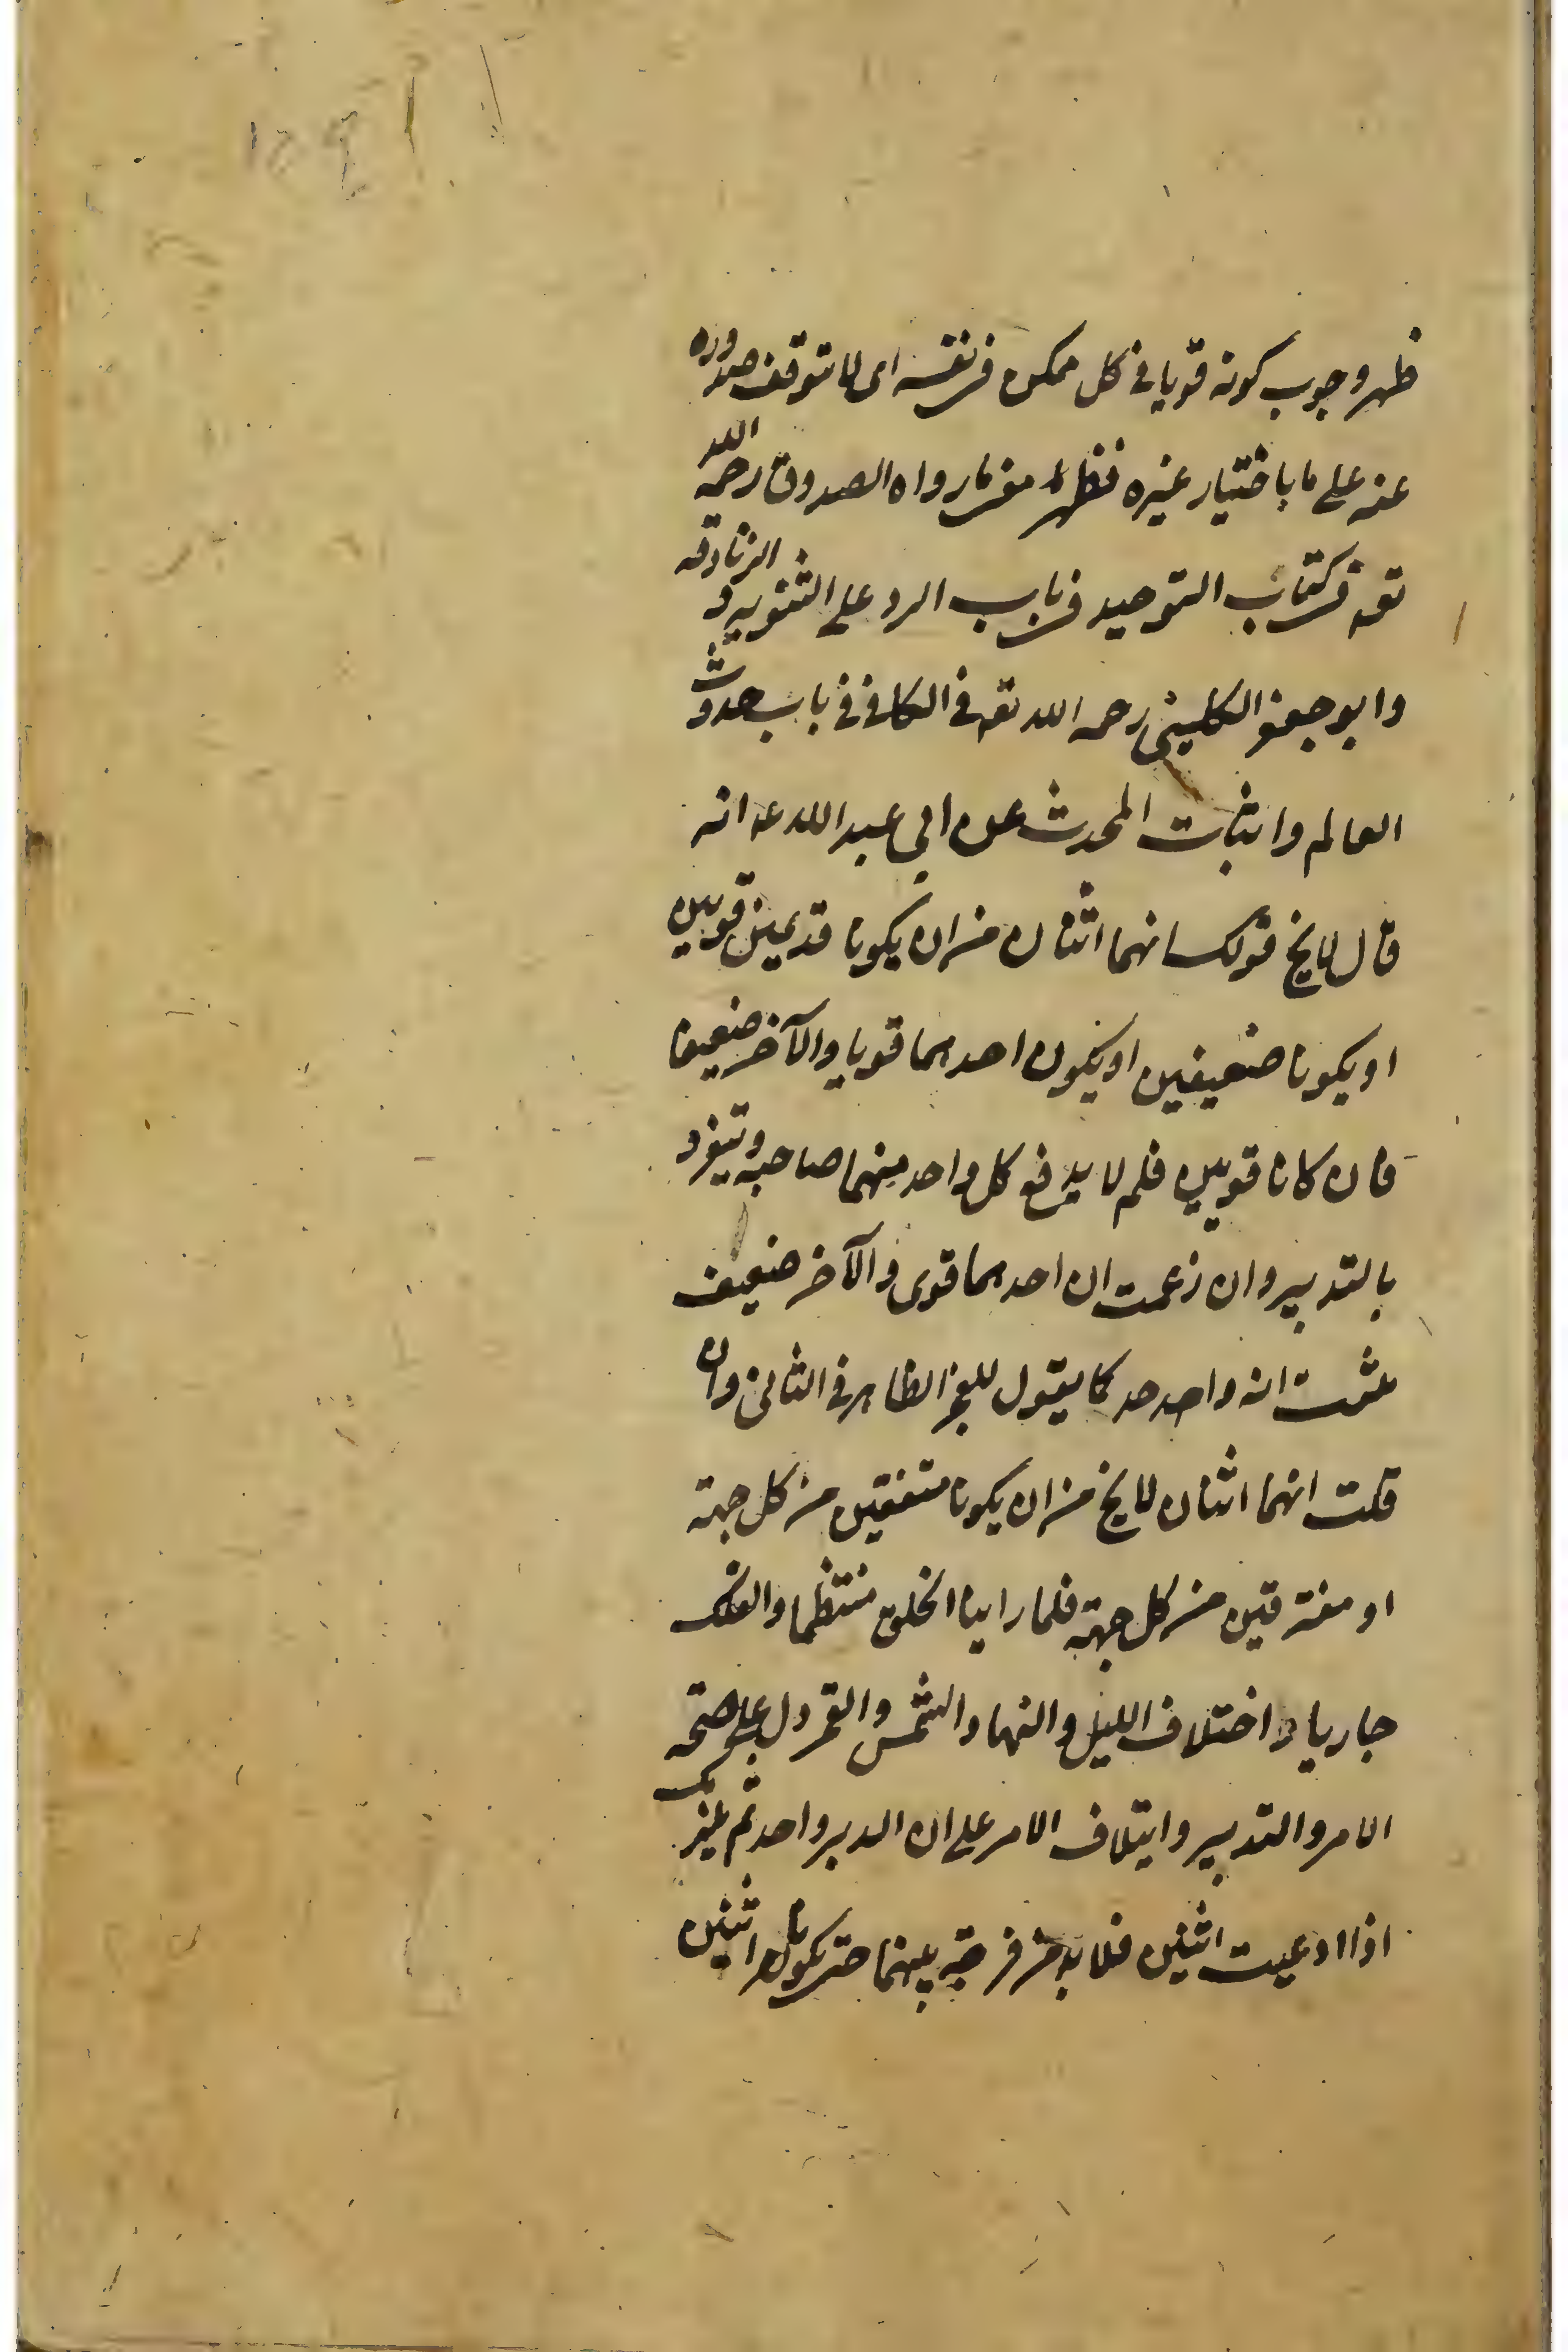 ظهر وجوب كونه قويا في كل ممكن في نفسه اى لا يتوقف صدوره
عنه على ما باختيار غيره فظهر مما رواه الصدوق رحمه الله
تعه في كتاب التوحيد في باب الرد على الثنوية و الزنادقة
وابو جعفر الكليني رحمه الله تعه في الكافي في باب حدوث
العالم واثبات المحدث عن ابي عبد الله عه انه
قال لا يخ قولك انهما اثنان من ان يكونا قديمين قويين
او يكونا ضعيفين او يكون احدهما قويا والآخر ضعيفا
فان كانا قويين فلم لا يدفع كل واحد منهما صاحبه ويتفرد
بالتدبير وان زعمت ان احدهما قوى والآخر ضعيف
ثبت انه واحد كما يقول للعجز الظاهر في الثاني وان
قلت انهما اثنان لا يخ من ان يكونا متفقين من كل جهة
او مفترقين من كل جهة فلما راينا الخلق منتظما والفلك
جاريا واختلاف الليل والنهار والشمس والقمر دل على صحة
الامر والتدبير وايتلاف الامر على ان المدبر واحد ثم يلزمك
اذا ادعيت اثنين فلا بد من فرجة بينهما حتى يكونا اثنين